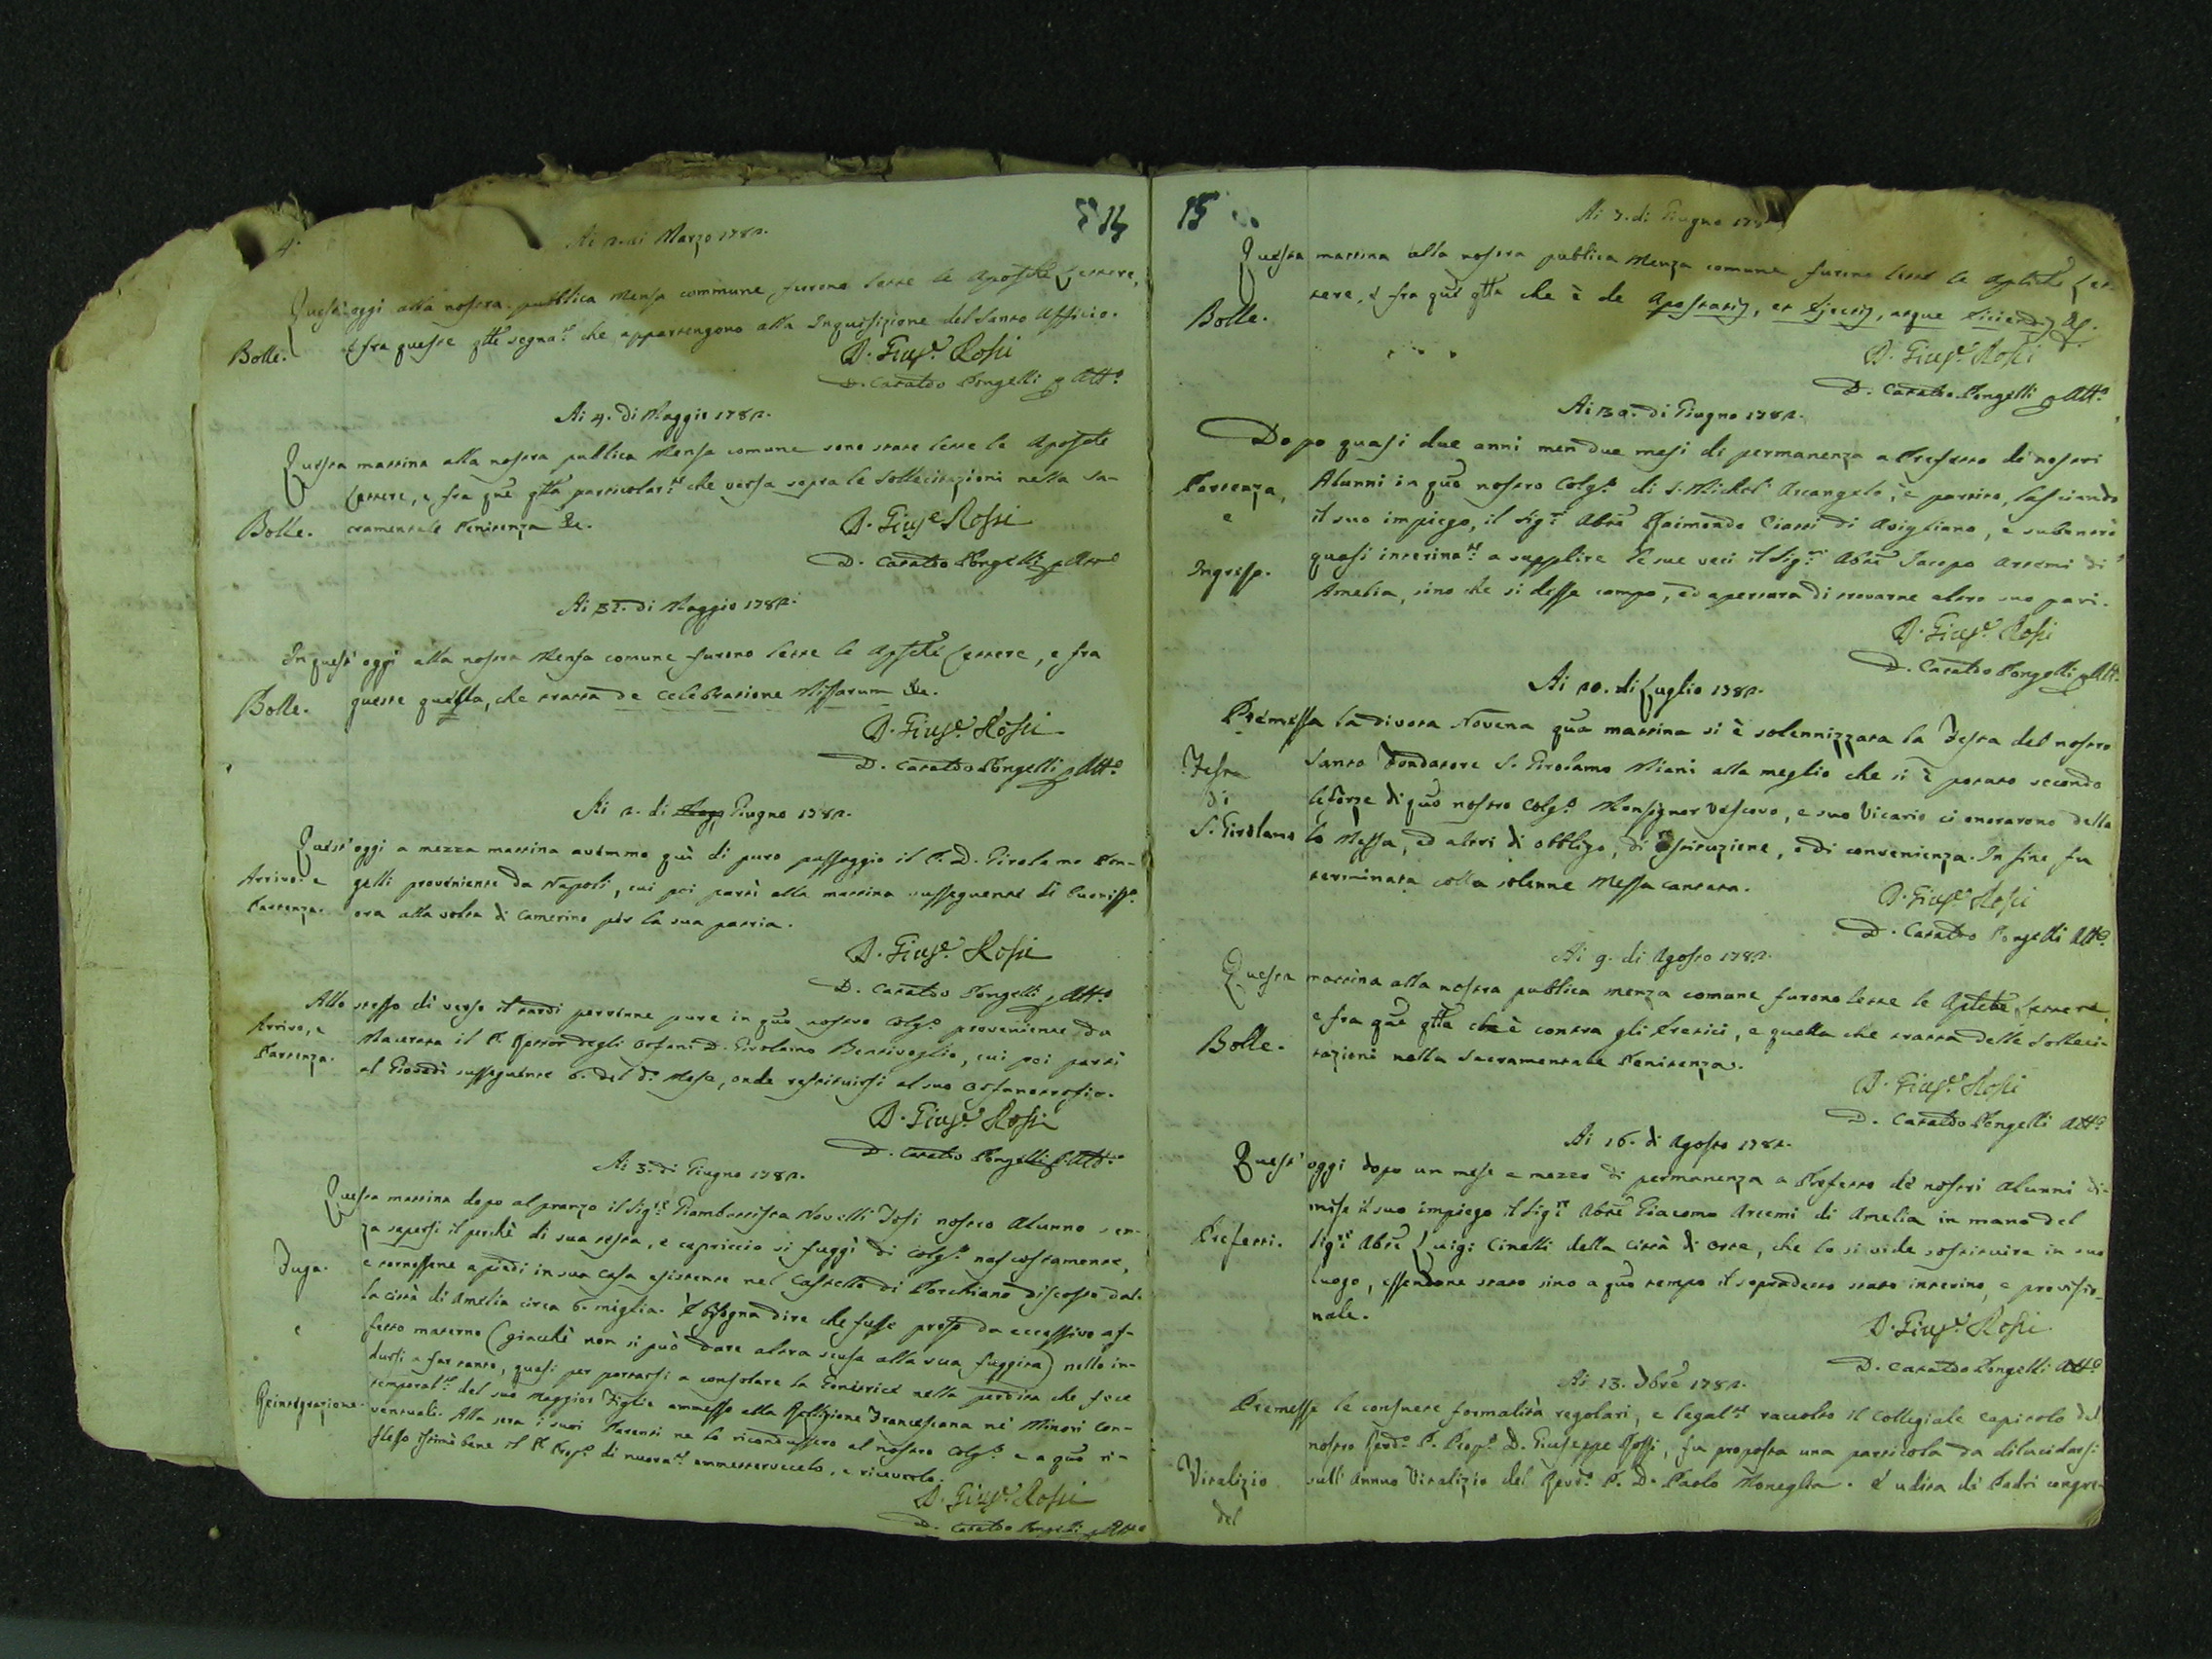 4.
14
Ai 2. di Marzo 1782.
Quest'oggi alla nostra pubblica Mensa commune furono lette le Aposte Lettere,
Bolle.
e fra queste qtte segnate che appartengono alla Inquisizione del Santo Officio.
D. Giuse. Rossi
D. Cataldo Pongelli Atto
Ai 4. di Maggio 1782.
Questa mattina alla nostra publica Mensa comune sono state lette le Aposte
Lettere, e fra que qtta particolarte che versa sopra le sollecitazioni nella Sa-
Bolle.
cramentale Penitenza &c.
D. Giuse Rossi
D. Cataldo Pongelli Atto
Ai 31. di Maggio 1782.
In quest'oggi alla nostra Mensa comune furono lette le Aptche Lettere, e fra
Bolle.
queste quella, che tratta de celebratione Missarum &c.
D. Giuse. Rossi
D. Cataldo Pongelli Atto
Ai 2. di Giugno 1782.
Quest'oggi a mezza mattina avemmo quì di puro passaggio il P. D. Girolamo Pon-
Arrivo e
gelli proveniente da Napoli, cui poi partì alla mattina susseguente di buoniss.
Partenza.
ora alla volta di Camerino per la sua patria.
D. Giuse. Rossi
D. Cataldo Pongelli Atto
Allo stesso dì verso il tardi pervenne pure in quo nostro Colgo proveniente da
Arrivo, e
Macerata il P. Rettor degli Orfani D. Girolamo Bentivoglio, cui poi partì
Partenza.
al Giovedì susseguente 6. del do Mese, onde restituirsi al suo Orfanotrofio.
D. Giuse. Rossi
D. Cataldo Pongelli Atto
Ai 3. di Giugno 1782.
Questa mattina dopo al pranzo il Sigre Giambattista Novelli Josi nostro Alunno sen-
za sapersi il perchè di sua testa, e capriccio si fuggì di Colgo nascostamente,
Fuga.
e tornossene a piedi in sua Casa esistente nel Castello di Porchiano discosto dal-
la città di Amelia circa 6. miglia. E bisogna dire che fusse preso da eccessivo af-
e
fetto materno (giacchè non si può dare altra scusa alla sua fuggita) nello in-
dursi a far tanto, quasi per portarsi a consolare la Genitrice nella perdita che fece
Reintegrazione.
temporalte del suo Maggior Figlio ammesso alla Religione Francescana ne' Minori Con-
ventuali. Alla sera i suoi Parenti ne lo ricondussero al nostro Colgo e a quo ri-
flesso stimò bene il P. Propo di nuovate ammettervecelo, e riceverlo.
D. Giuse. Rossi
D. Cataldo Pongelli Atto
15
Ai 7. di Giugno 178
Questa mattina alla nostra publica Menza comune furono lette le Aptiche Let-
Bolle.
tere, e fra que qtta che è de Apostatis, et Ejectis, atque Eiciendis &c.
D. Giuse. Rossi
D. Cataldo Pongelli Atto
Ai di Giugno 1782.
Dopo quasi due anni men due mesi di permanenza a Prefetto di nostri
Partenza,
Alunni in quo nostro Colgo di S. Michel' Arcangelo, è partito, lasciando
e
il suo impiego, il Sigre Abte Raimondo Ciatti di Avigliano, e subentrò
Ingresso.
quasi interinate a supplire le sue veci il Sigre Abte Jacopo Artemi di
Amelia, sino che si desse campo, ed apertura di trovarne altro suo pari.
D. Giuse. Rossi
D. Cataldo Pongelli Atto
Ai 20. di Luglio 1782.
Premessa la divota Novena qua mattina si è solennizzata la Festa del nostro
Festa
Santo Fondatore S. Girolamo Miani alla meglio che si è potuto secondo
di
le forze di quo nostro Colgo. Monsignor Vescovo, e suo Vicario ci onorarono della
S. Girolamo
lo Messa, ed altri di obbligo, di restituzione, o di convenienza. In fine fu
terminata colla solenne Messa cantata.
D. Giuse. Rossi
D. Cataldo Pongelli Atto.
Ai 9. di Agosto 1782.
Questa mattina alla nostra publica menza comune furono lette le Aptche Lettere,
Bolle.
e fra que qtta che è contra gli Eretici, e quella che tratta delle Solleci-
tazioni nella Sacramentale Penitenza.
D. Giuse. Rossi
D. Cataldo Pongelli Atto.
Ai 16. di Agosto 1782.
Quest'oggi dopo un mese e mezzo di permanenza a Prefetto de nostri Alunni di-
mise il suo impiego il Sigre Abte Giacomo Artemi di Amelia in mano del
Prefetti.
Sigre Abte Luigi Cinelli della città di Orte, che lo si vide sostituire in suo
luogo, essendone stato sino a quo tempo il sopradetto stato interino, e provisio-
nale.
D. Giuse. Rossi
D. Cataldo Pongelli Atto
Ai 13. Xbre 1782.
Premesse le consuete formalità regolari, e legalte raccolto il Collegiale capitolo dal
nostro Revdo. P. Propo. D. Giuseppe Rossi, fu proposta una particola da dilucidarsi
Vitalizio
sull' annuo Vitalizio del Revdo. P. D. Paolo Moneglia. E udita di Padri congre-
del